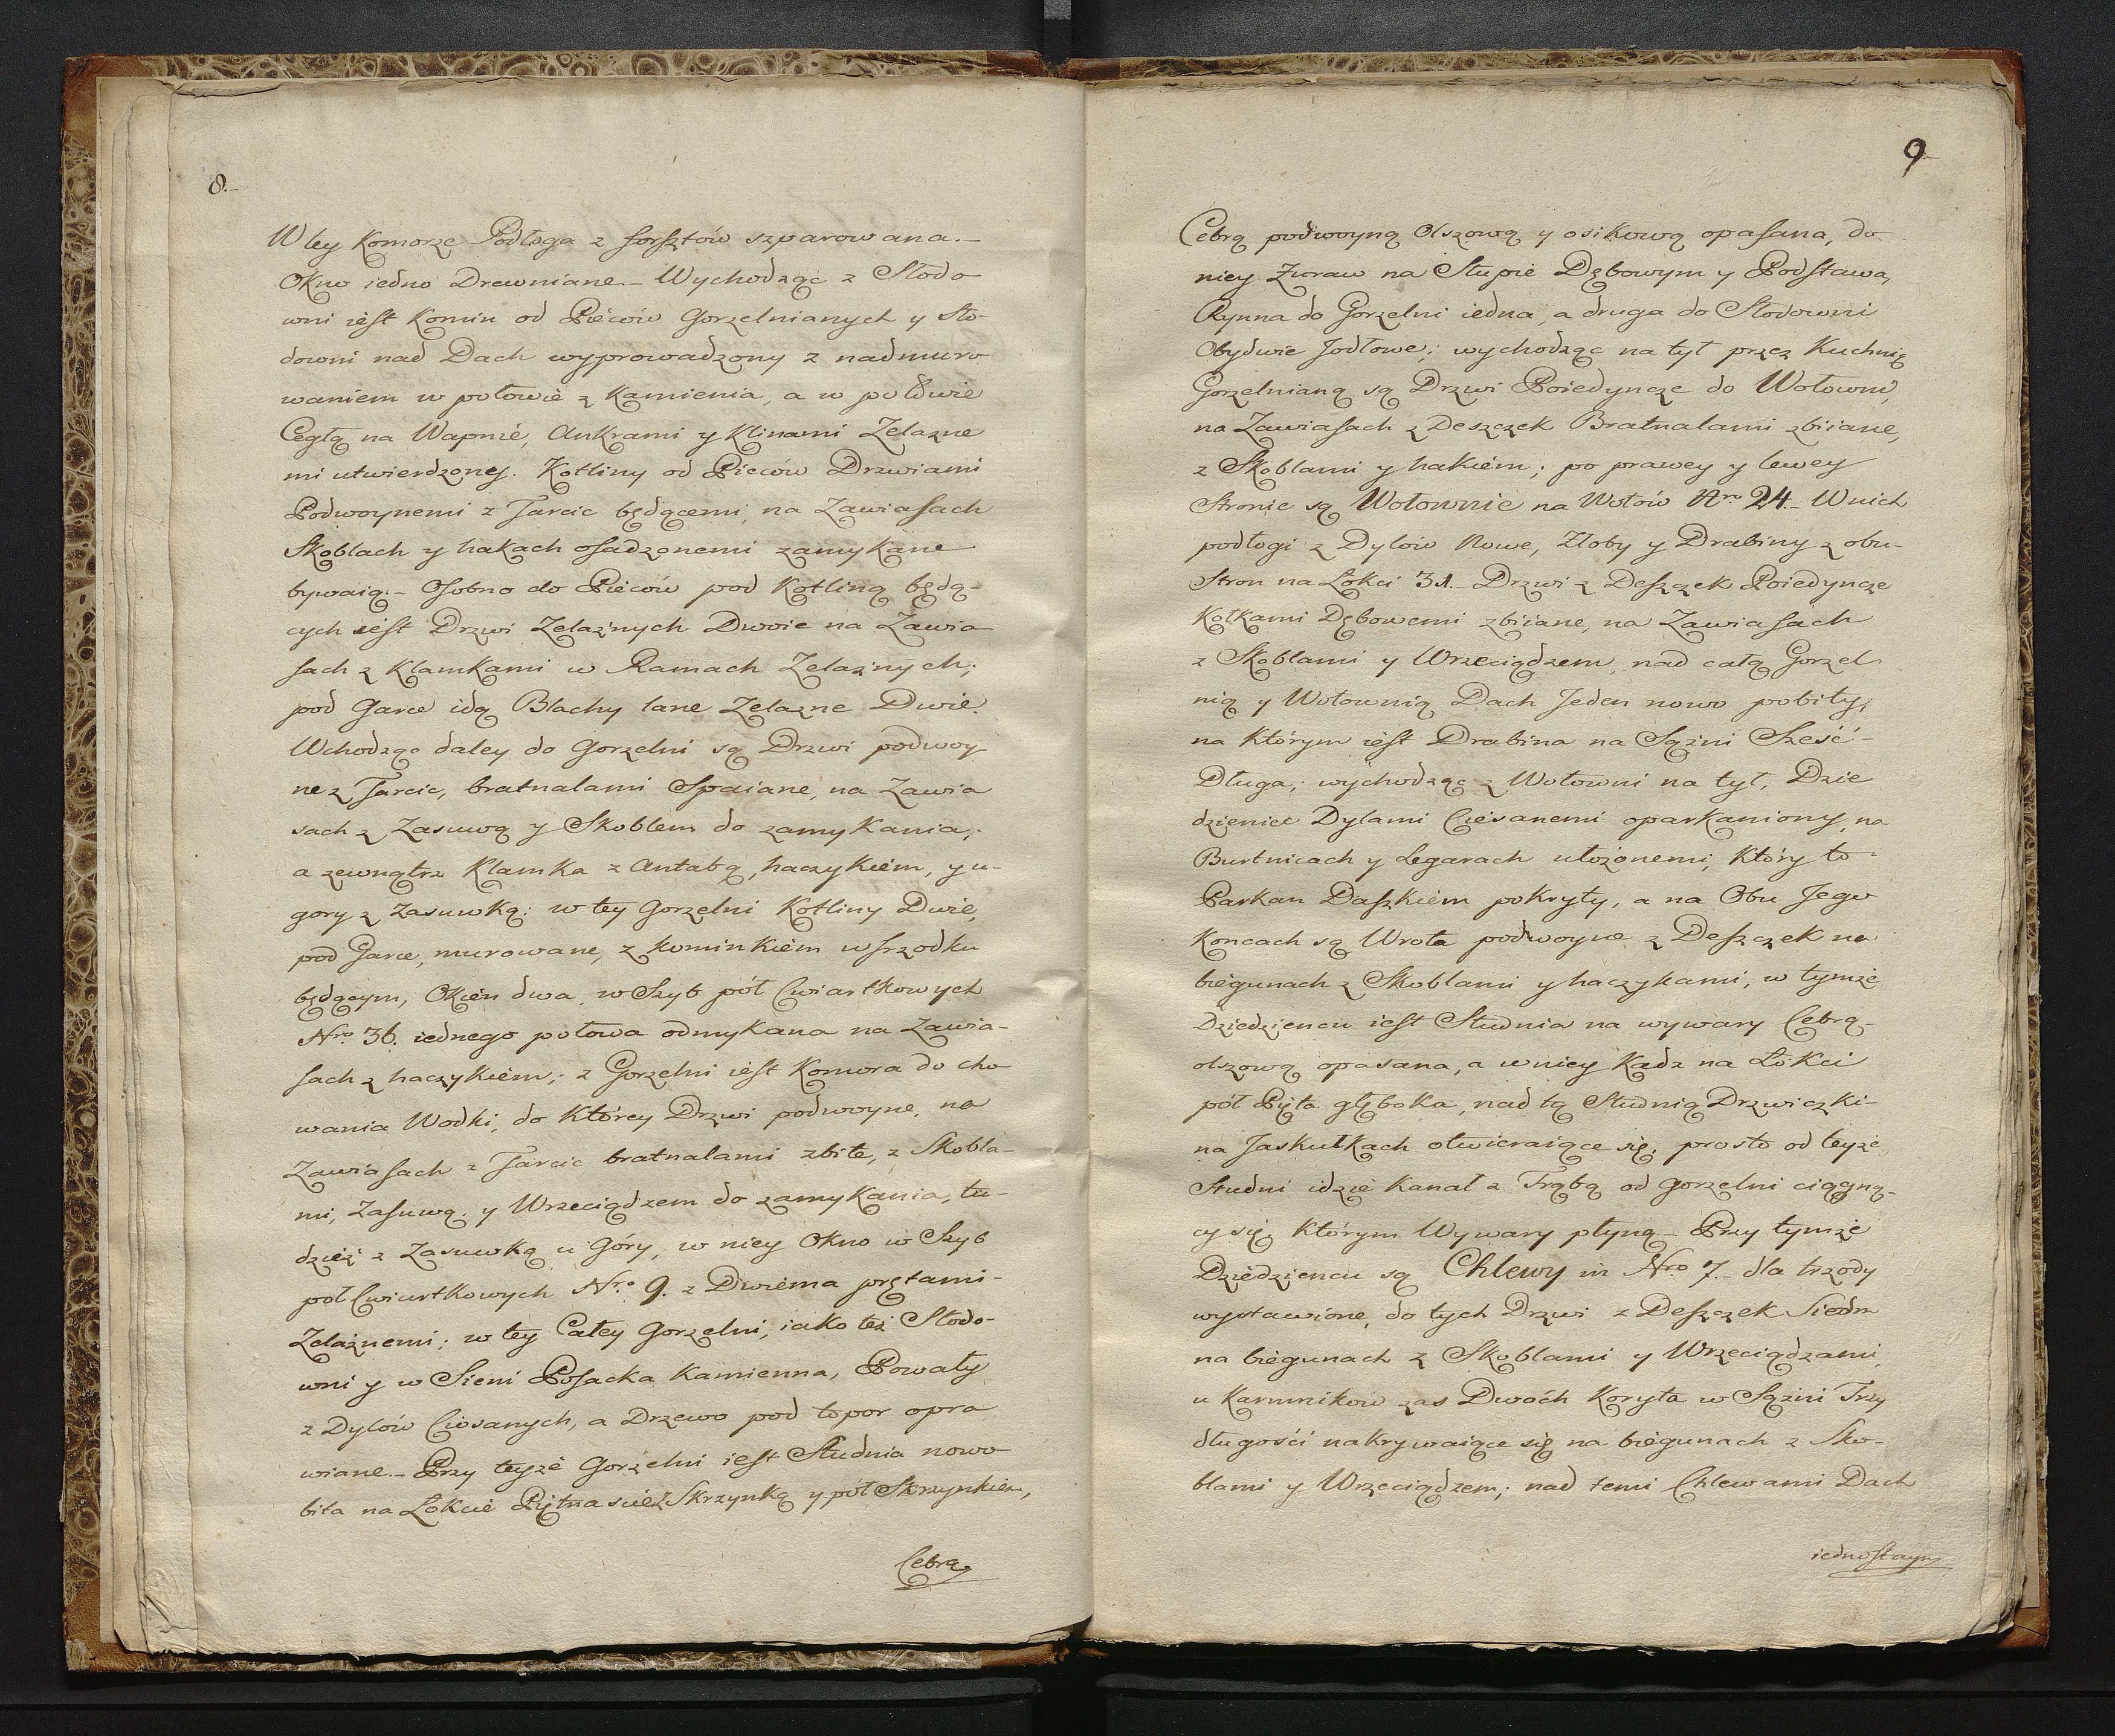 8.
W tey Komorze Podłoga z forsztów szparowana.
Okno iedno Drewniane. Wychodząc z Słodo
wni iest Komin od Pieców Gorzelnianych y Sło-
downi nad Dach wyprowadzony z nadmuro
waniem w połowie z Kamienia, a w połowie
Cegłą na Wapnie, Ankrami y Klinami Zelazne
mi utwierdzoney. Kotliny od Pieców Drzwiami
Podwoynemi z Tarcic będącemi na Zawiasach
Skoblach y hakach osadzonemi zamykane
bywaią. Osobno do Pieców pod Kotliną będą-
cych iest Drzwi Zelaznych Dwoie na Zawia
sach z Klamkami w Ramach Zelaznych;
pod Garce idą Blachy lane Zelazne Dwie.
Wchodząc daley do Gorzelni są Drzwi podwoy
ne z Tarcic, bratnalami Spaiane, na Zawia
sach z Zasuwą y Skoblem do zamykania,
a zewnątrz Klamka z Antabą, haczykiem, y u-
gory z zasuwką: w tey Gorzelni Kotliny Dwie,
pod Garce, murowane, z kominkiem w srzodku
będącym, Okien dwa, w Szyb pół Cwiartkowych
Nro. 36. iednego połowa odmykana na Zawia-
sach z haczykiem; z Gorzelni iest Komora do cho
wania Wodki, do Którey Drzwi podwoyne, na
Zawiasach z Tarcic bratnalami zbite, z Skobla-
mi, Zasuwą. y Wrzeciądzem do zamykania, tu-
dzież z Zasuwką u Góry, w niey Okno w Szyb
poł Cwiartkowych Nro. 9. z Dwiema prętami-
Zelaznemi; w tey Całey Gorzelni, iako też Słodo-
wni y w Sieni Posacka Kamienna, Powały
z Dylów Ciosanych, a Drzewo pod topor opra
wiane. Przy teyże Gorzelni iest Studnia nowo
bita na Łokcie Piętnaście z Skrzynką y pół Skrzynkiem,
Cebrą
9
Cebrą podwoyną Olszową y osikową opasana, do
niey Zuraw na Słupie Dębowym y Podstawa,
Rynna do Gorzelni iedna, a druga do Słodowni
Obydwie Jodłowe; wychodząc na tył przez Kuchnię
Gorzelnianą są Drzwi Poiedyncze do Wołowni,
na Zawiasach z Deszczek Bratnalami zbiiane,
z Skoblami y hakiem; po prawey y lewey
Stronie są Wołownie na Wołów Nro 24. W nich
podłogi z Dylów Nowe, Złoby y Drabiny z obu-
Stron na Łokci 31. Drzwi z Deszczek Poiedyncze
Kołkami Dębowemi zbiiane, na Zawiasach
z Skoblami y Wrzeciądzem, nad całą Gorzel
nią y Wołownią Dach Jeden nowo pobity,
na Którym iest Drabina na Sązni Sześć-
Długa; wychodząc z Wołowni na tył, Dzie
dziniec Dylami Ciesanemi oparkaniony, na
Burtnicach y Legarach ułożonemi, Który to
Parkan Daszkiem pokryty, a na Obu Jego
Koncach są Wrota podwoyne z Deszczek na
biegunach z Skoblami y haczykami, w tymże
Dziedziencu iest Studnia na wywary Cebrą
olszową opasana, a w niey Kadz na Łokci
pół Pięta głęboka, nad tą Studnią Drzwiczki-
na Jaskułkach otwieraiące się, prosto od teyże
Studni idzie Kanał z Trąbą od gorzelni ciągną-
cy się, Którym Wywary płyną. Przy tymże
Dziedziencu są Chlewy in Nro 7. dla trzody
wystawione, do tych Drzwi z Deszczek Siedm
na biegunach z Skoblami y Wrzeciądzami,
u Karmnikow zas Dwoch Koryta w Sązni Trzy
długości nakrywaiące się na biegunach z Sko-
blami y Wrzeciądzem; nad temi Chlewami Dach
iednostayny